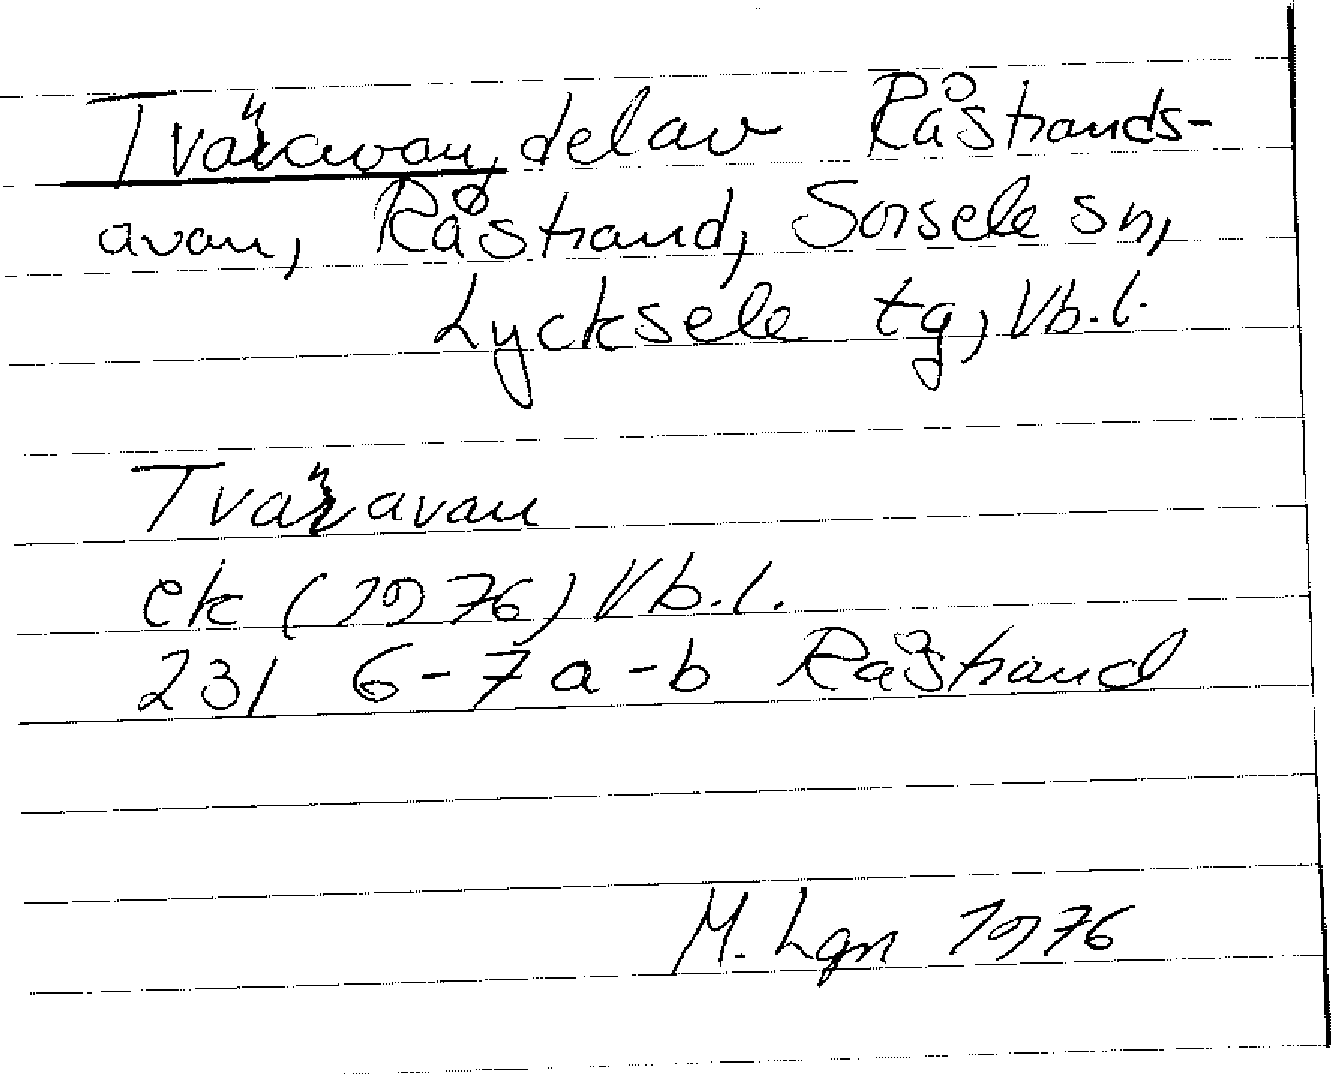 Tväravan, del av Råstrands-
avan, Råstrand, Sorsele sn,
Lycksele tg, Vb.l.
Tväravan
ek (1976) Vb.l.
23I 6-7 a-b Råstrand
M. Lgn 1976